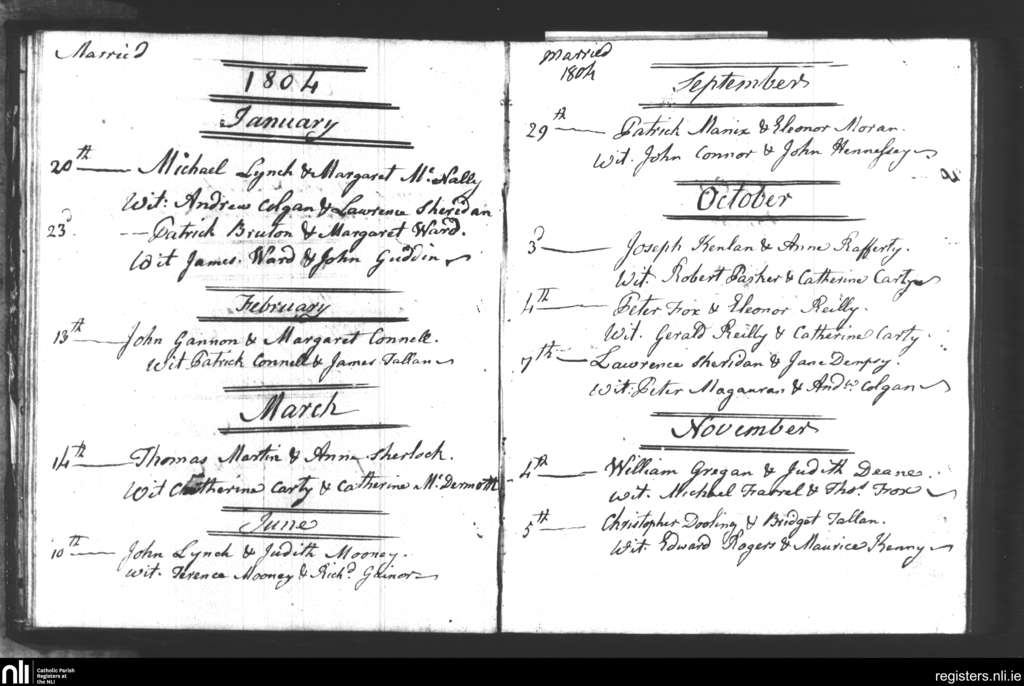 Married
1804
January
20th Michael Lynch & Margaret Mc Nally
Wit: Andrew Colgan & Lawrence Sheridan
23d Patrick Bruton & Margaret Ward.
Wit James Ward & John
February
13th John Gannon & Margaret Connell.
Wit Patrick Connell & James Tallan
March
14th Thomas Martin & Anne Sherlock.
Wit Catherine Carty & Catherine Mc Dermott
June
10th John Lynch & Judith Mooney.
Wit. Terence Mooney & Richd Gainor
Married
1804
September
29th Patrick Manix & Eleonor Moran.
Wit. John Connor & John Hennessey
October
3d Joseph Kenlan & Anne Rafferty.
Wit. Robert Parker & Catherine Carty
4th Peter Fox & Eleonor Reilly.
Wit. Gerald Reilly & Catherine Carty.
7th Lawrence Sheridan & Jane Dempsy.
Wit: Peter Magauran & Andw Colgan
November
4th William Gregan & Judith Deane.
Wit. Michael Farrel & Thos Fox
5th Christopher Dooling & Bridget Tallan.
Wit. Edward Rogers & Maurice Kenny
nli Catholic Parish
Registers at
the NLI
registers.nli.ie